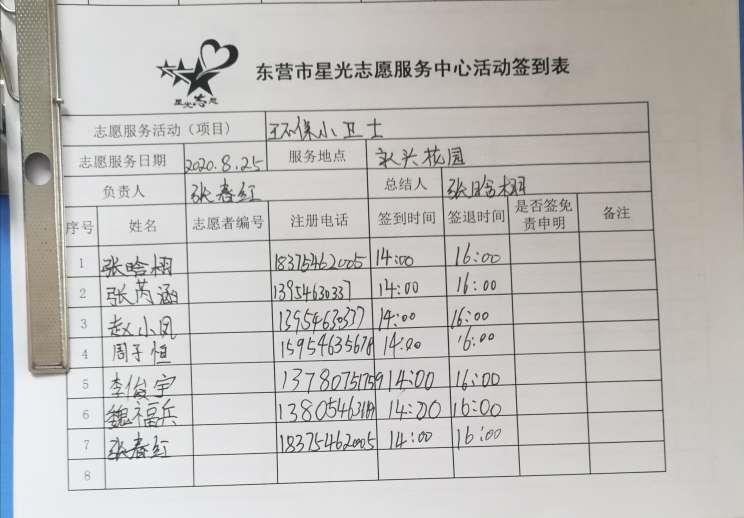 星光志愿
东营市星光志愿服务中心活动签到表
志愿服务活动（项目） 环保小卫士
志愿服务日期 2020.8.25 服务地点 永兴花园
负责人 张春红 总结人 张晗栩
序号 姓名 志愿者编号 注册电话 签到时间 签退时间 是否签免责申明 备注
1 张晗栩 18375462005 14:00 16:00
2 张芮涵 13954630337 14:00 16:00
3 赵小凤 13954630337 14:00 16:00
4 周子恒 15954635678 14:00 16:00
5 李俊宇 13780751759 14:00 16:00
6 魏福兵 14:00 16:00
7 张春红 18375462005 14:00 16:00
8